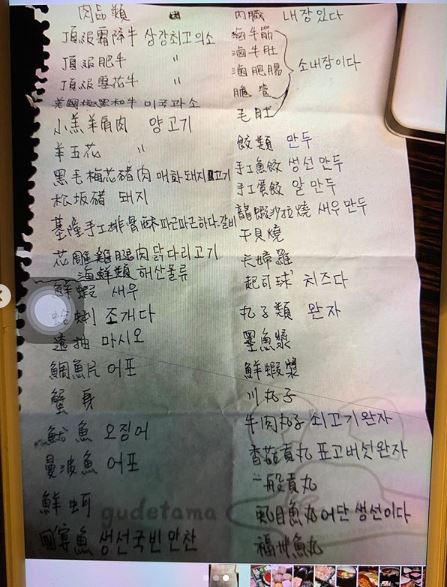 肉品類
頂級霜降牛 상강최고의소
頂級肥牛 〃
頂級雪花牛 〃
美國極黑和牛 미국과소
小羔羊肩肉 양고기
羊五花 〃
黑毛梅花豬肉 매화돼지고기
松板豬 돼지
基隆手工排骨酥 파근파근하다.갈비
花雕雞腿肉 닭다리고기
海鮮類 해산물류
鮮蝦 새우
蛤蜊 조개다
透抽 마시오
鯛魚片 어포
蟹身
魷魚 오징어
曼波魚 어포
鮮蚵
國宴魚 생선국빈만찬
內臟 내장있다
滷牛筋
滷牛肚
滷肥腸
脆管
소내장이다
毛肚
餃類 만두
手工魚餃 생선만두
手工蛋餃 알만두
龍蝦沙拉燒 새우만두
干貝燒
夫婦羅
起司球 치즈다
丸子類 완자
墨魚漿
鮮蝦漿
川丸子
牛肉丸子 쇠고기완자
香菇貢丸 표고버섯완자
一般貢丸
虱目魚丸 어단생선이다
福州魚丸
gudetama